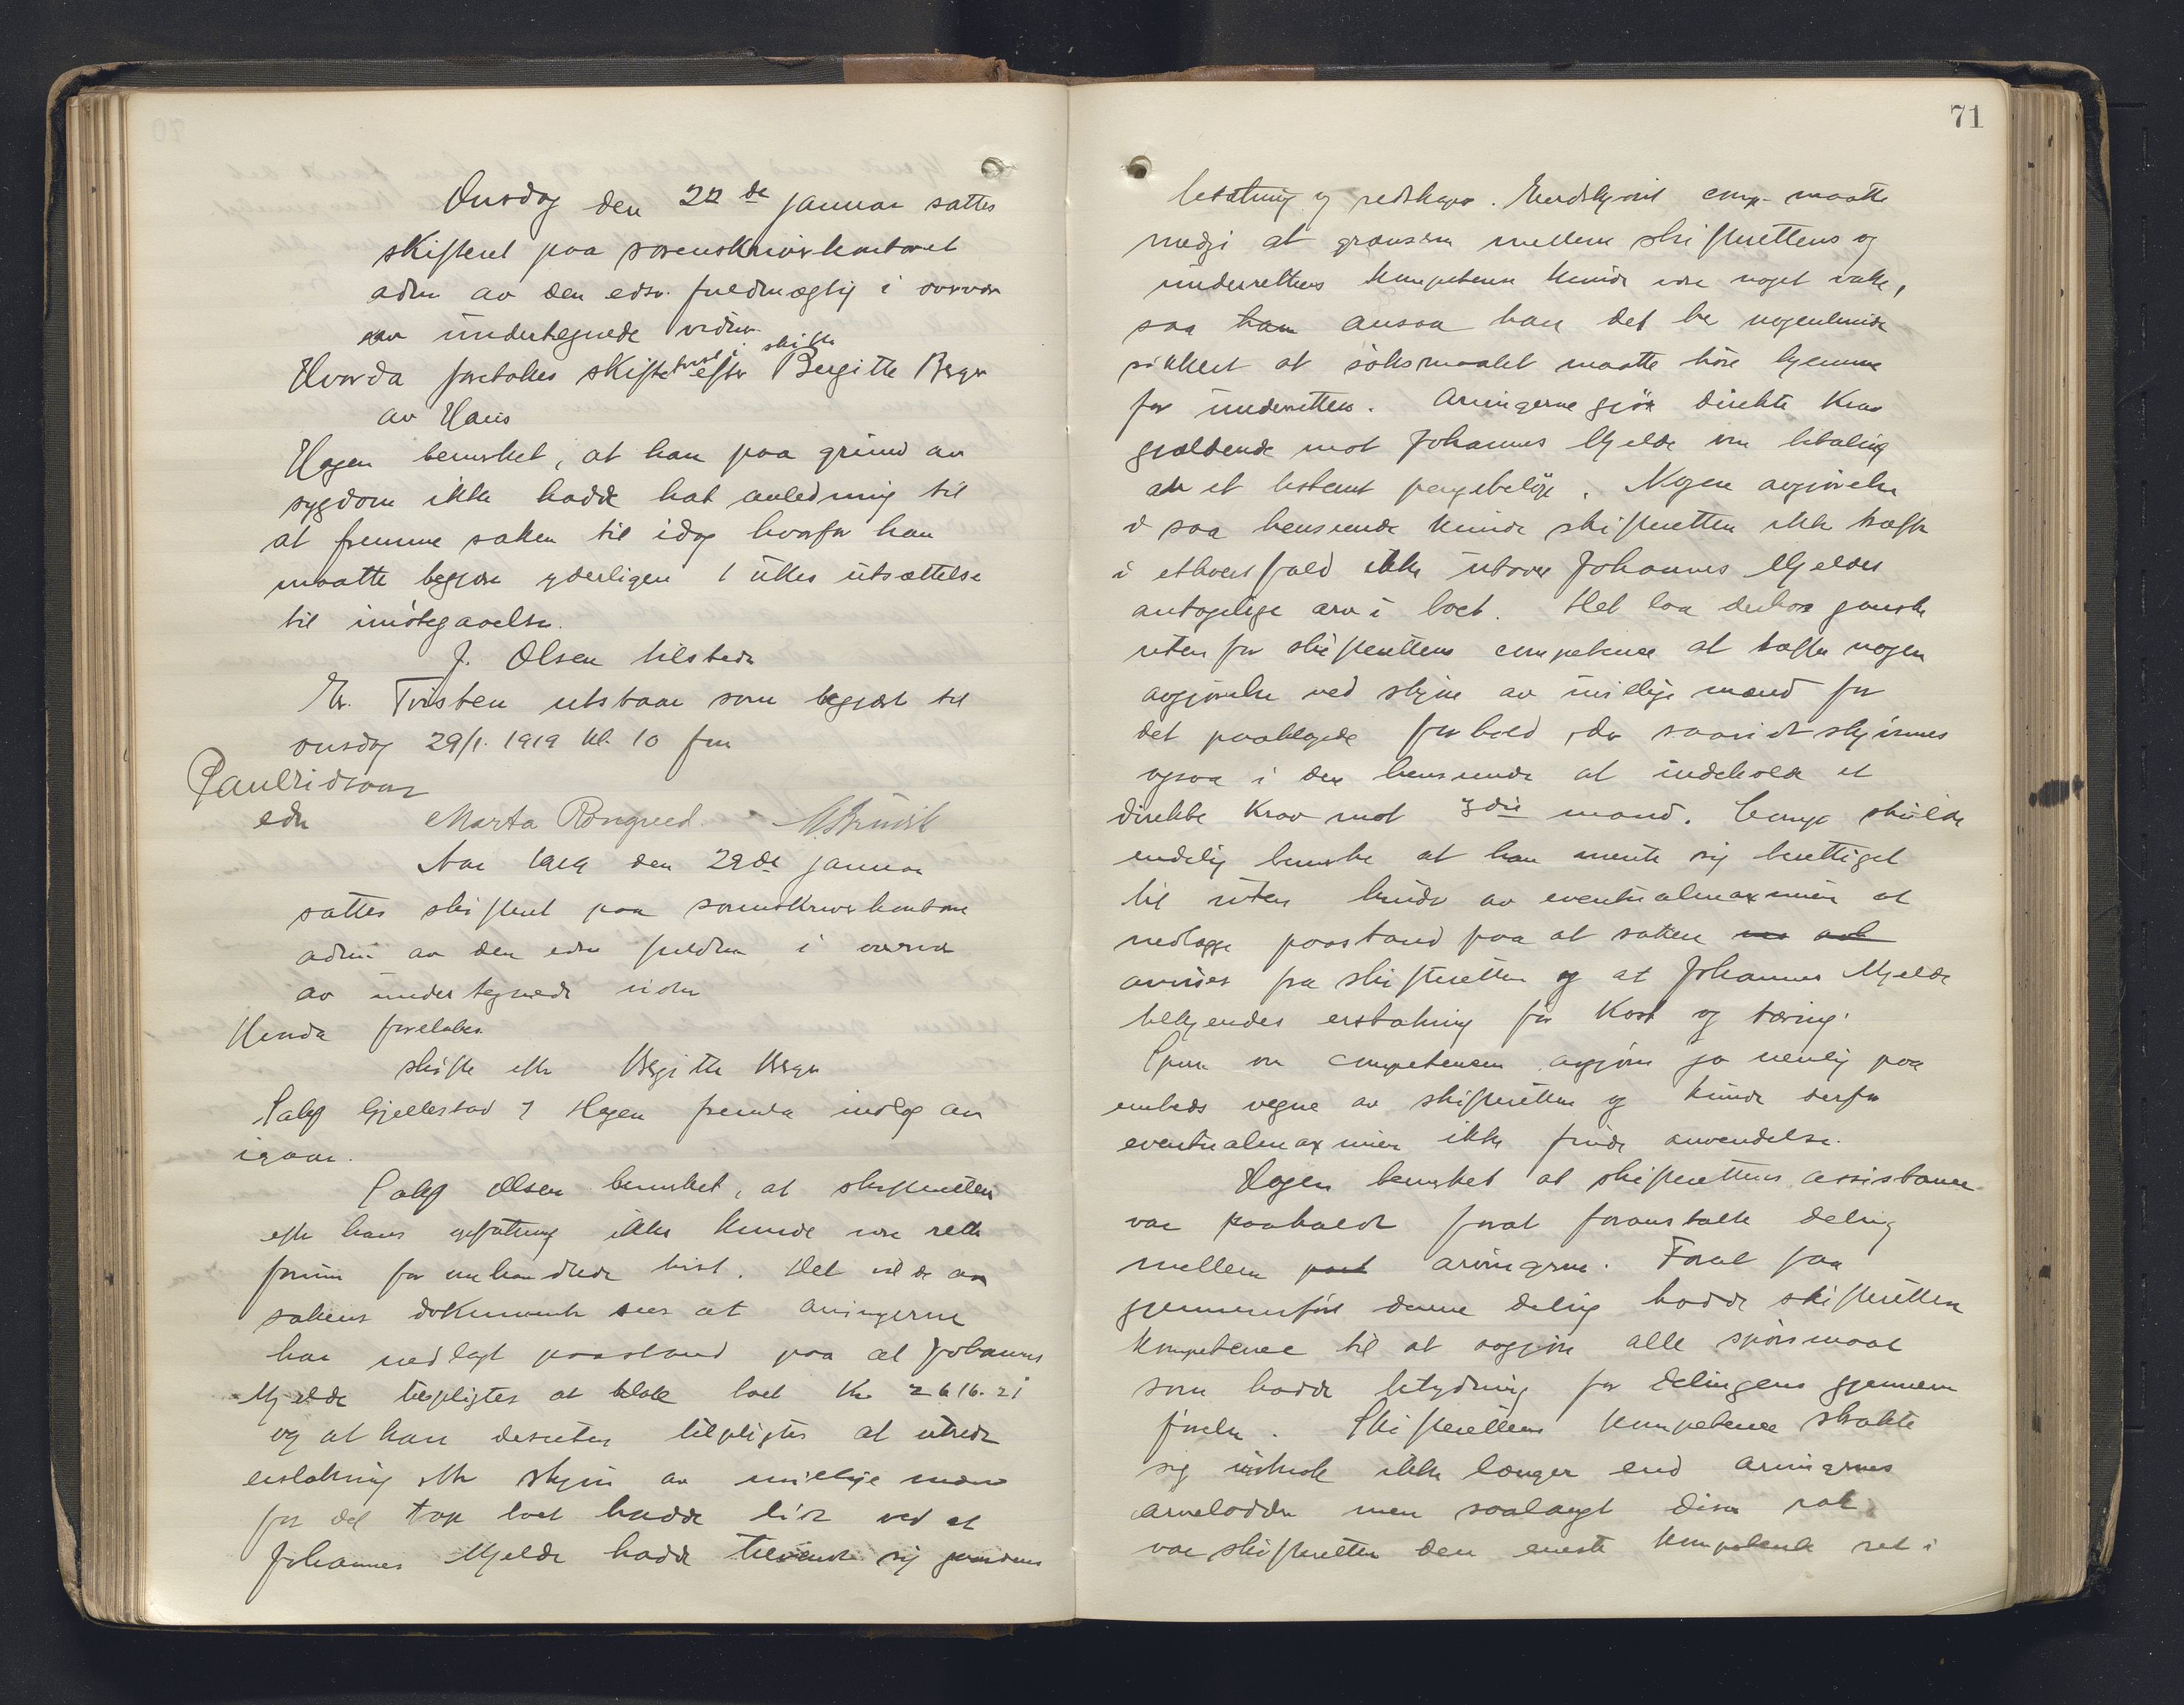 Onsdag den 22de januar sattes
skifteret paa sorenskriverkontoret
adm av den edsv. fuldmægtig i overvær
av undertegnede vidner
Hvorda foretokes skiftetvist i skifte efter Birgitte Berge
av Haus
Hagen bemerket, at han paa grund av
sygdom ikke hadde hat anledning til
at fremme saken til idag hvorfor han
maatte begjære yderligere 1 ukes utsættelse
til imøtegaaelse.
J. Olsen tilstede
Er. Tvisten utstaar som begjært til
onsdag 29/1. 1919 kl. 10 fm
edsv Marta
Aar 1919 den 29de januar
sattes skifteret paa sorenskriverkontoret
adm av den edsv fuldm i overvær
av undertegnede vidner
Hvorda foretokes
skifte efter Birgitte Berge
Sakf Gjellestad f Hagen fremla indlæg av
igaar.
Sakf Olsen bemerket, at skifteretten
efter hans opfatning ikke kunde være rette
forum for omhandlede tvist. Det vil da av
sakens dokumenter sees at arvingerne
har nedlagt paastand paa at Johannes
Mjelde tilpligtes at betale boet Kr 2616.21
og at han desuten tilpligtes at utrede
erstatning efter skjøn av uvillige mænd
for det tap boet hadde lidt ved at
Johannes Mjelde hadde tilvendt sig gaardens
71
besætning og redskaper. Endskjønt comp. maatte
medgi at grænsen mellem skifterettens og
underrettens kompetence kunde være noget vake,
saa ansaa han det be nogenlunde
sikkert at søksmaalet maatte høre hjemme
for underretten. Arvingerne gjør direkte krav
gjældende mot Johannes Mjelde om betaling
av et bestemt pengebeløp. Nogen avgjørelse
i saa henseende kunde skifteretten ikke træffe
i ethvert fald ikke utover Johannes Mjeldes
antagelige arv i boet. Det laa derhos ganske
uten for skifterettens competence at træffe nogen
avgjørelse ved skjøn av uvillige mænd for
det paaklagede forhold, da saavidt skjønnes
ogsaa i den henseende at indeholde et
direkte krav mot 3die mand. Comp. skulde
endelig bemerke at han mente sig berettiget
til uten hinder av eventualmaximen at
nedlægge paastand paa at saken
avvises fra skifteretten og at Johannes Mjelde
tilkjendes erstatning for kost og tæring.
Spm om competencen avgjøres jo nemlig paa
embeds vegne av skifteretten og kunde derfor
eventualmaximen ikke finde anvendelse.
Hagen bemerket at skifterettens assistance
var paakaldt forat foranstalte deling
mellem arvingerne. Forat faa
gjennemført denne deling hadde skifteretten
kompetence til at avgjøre alle spørsmaal
som hadde betydning for delingens gjennem
førelse. Skifterettens kompetence strakte
sig ikke længer end arvingernes
arvelodder men saalangt disse rak
var skifteretten den eneste kompetente ret i